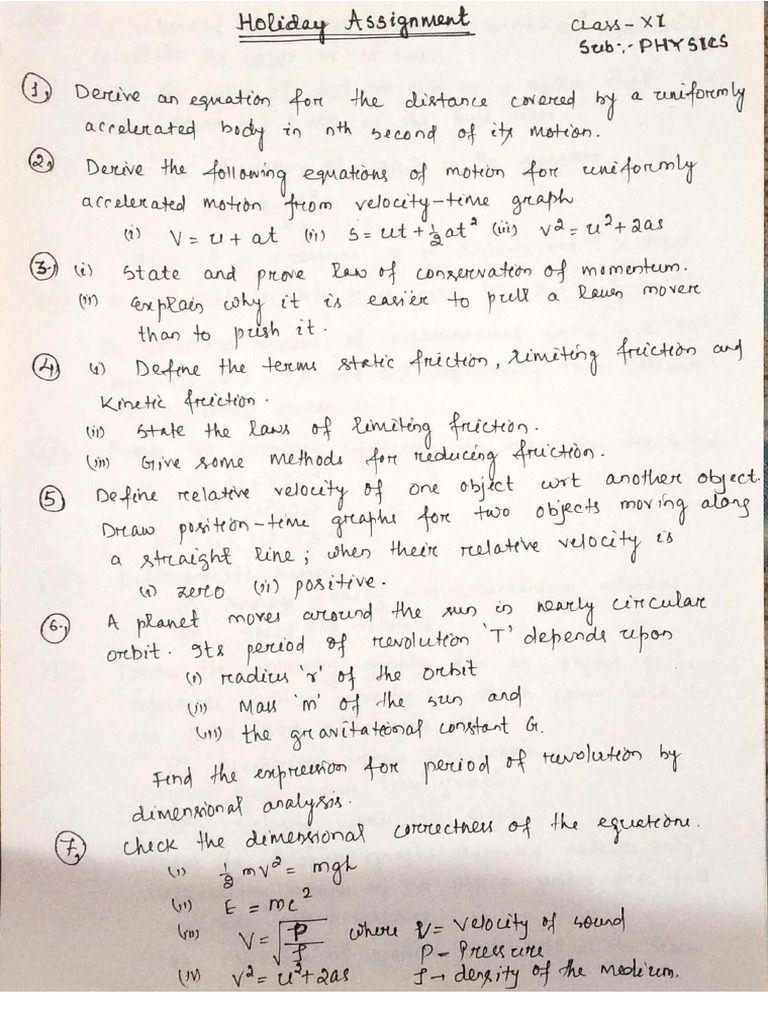 Holiday Assignment
Class - XI
Sub:- PHYSICS
1. Derive an equation for the distance covered by a uniformly
accelerated body in nth second of its motion.
2. Derive the following equations of motion for uniformly
accelerated motion from velocity-time graph
(i) V = u + at (ii) S = ut + ½at² (iii) v² = u² + 2as
3. (i) State and prove law of conservation of momentum.
(ii) explain why it is easier to pull a lawn mover
than to push it.
4 (i) Define the terms static friction, limiting friction and
Kinetic friction.
(ii) State the laws of limiting friction.
(iii) Give some methods for reducing friction.
5 Define relative velocity of one object wrt another object.
Draw position-time graphs for two objects moving along
a straight line; when their relative velocity is
(i) zero (ii) positive.
6. A planet moves around the sun in nearly circular
orbit. Its period of revolution 'T' depends upon
(i) radius 'r' of the orbit
(ii) Mass 'm' of the sun and
(iii) the gravitational constant G.
Find the expression for period of revolution by
dimensional analysis.
7. Check the dimensional correctness of the equations.
(i) ½ mv² = mgh
(ii) E = mc²
(iii) V = √P/ρ where V = velocity of sound
P - Pressure
(iv) v² = u² + 2as ρ → density of the medium.